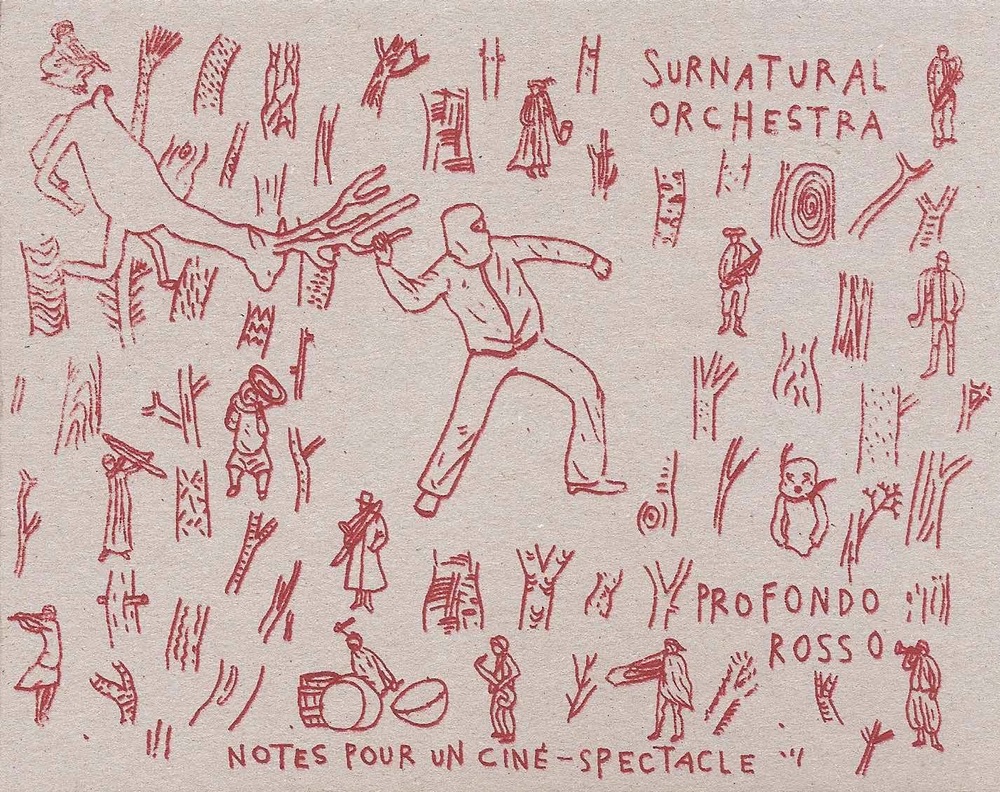 SURNATURAL
ORCHESTRA
PROFONDO
ROSSO
NOTES POUR UN CINÉ-SPECTACLE